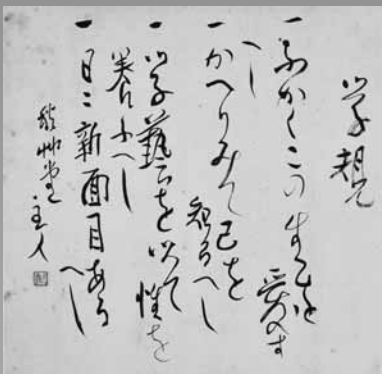 学規
一 ふかくこの生を愛す
へし
一 かへりみて己を
知るへし
一 学藝を以て性を
養ふへし
一 日々新面目ある
へし
秋艸堂主人